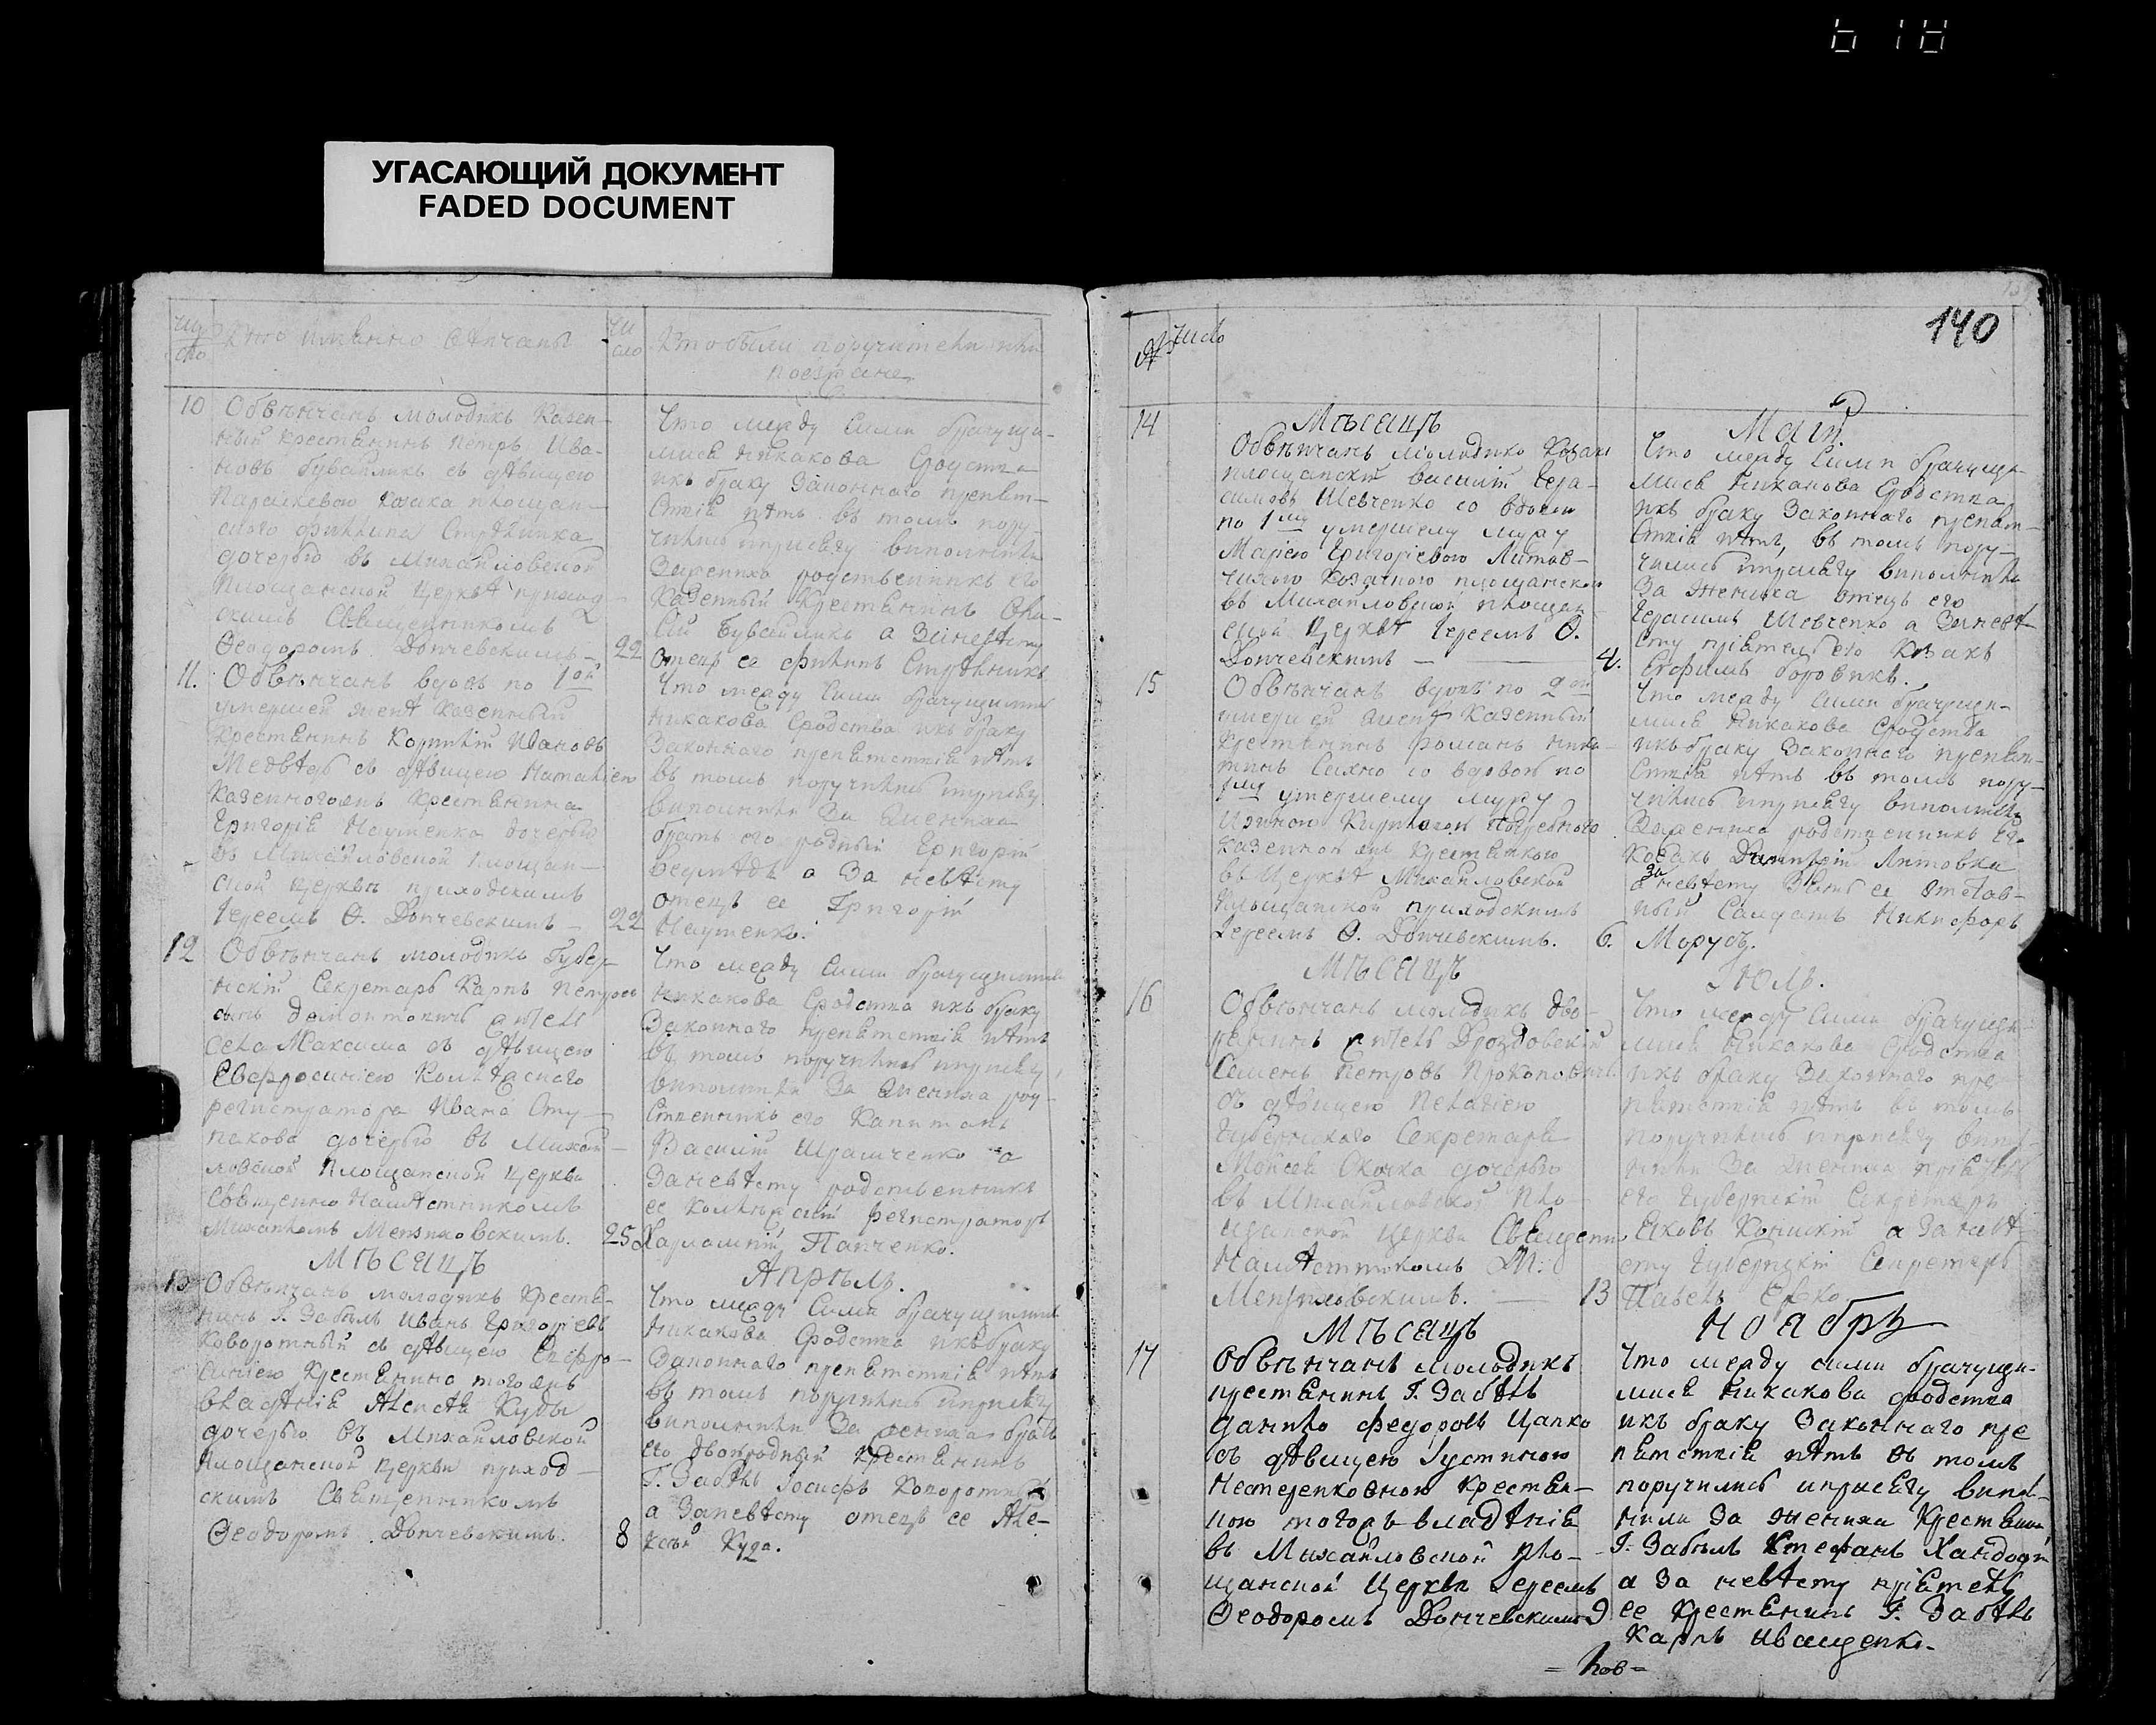 УГАСАЮЩИЙ ДОКУМЕНТ
FADED DOCUMENT
Число
Кто имянно венчаны
Чи
сло
Кто были поручители или
поезжане
10
Обвѣнчанъ молодикъ Казен-
ный крестянинъ Петръ Ива-
новъ Бувайликъ съ дѣвицею
Параскевою козака площан-
ского Филипа
дочерью въ Михайловской
Площанской церквѣ приход-
скимъ Священникомъ
Ѳеодоромъ Дончевскимъ-
22
Что между сими брачущи-
мися никакова сродства
икъ браку законнаго препят-
ствія нѣтъ въ томъ пору-
чились иприсягу виполнили
Зажениха родственникъ его
Казенный Крестянинъ
Бувайликъ а Заневѣсту
Отецъ ее Филипъ
11.
Обвѣнчанъ вдовъ по 1ой
умершей женѣ казенный
крестянинъ Корнилій Ивановъ
Медвѣдь съ дѣвицею Наталіею
Казенногожъ крестянина
Григорія Науменка дочерью
въ Михайловской Площан-
ской церкви приходскимъ
Іереемъ Ѳ. Дончевскимъ-
22
Что между сими брачущимися
никакова сродства икъ браку
Законнаго препятствія нѣтъ
въ томъ поручились иприсягу
виполнили За жениха
братъ его родный Григорій
Медвѣдь а За невѣсту
отецъ ее Григорій
Науменко.
12
Обвѣнчанъ молодикъ Губер-
нскій Секретарь Карпъ Петровъ
сынъ жителъ
села Максима съ дѣвицею
Евфросиніею Колѣжского
регистратора Ивана Сту-
пакова дочерью въ Михай-
ловской Площанской церкви
Священно Намѣстникомъ
Михаиломъ Мензиховскимъ.
25
Что между сими брачущимися
никакова сродства икъ браку
Законнаго препятствія нѣтъ
въ томъ поручились иприсягу
виполнили За жениха род-
ственникъ его Капитанъ
Василій Ирамченко а
Заневѣсту родственникъ
ее Колѣжскій регистраторъ
Харлампій Панченко.
Мѣсяцъ
Апрѣль.
13
Обвѣнчанъ молодикъ Крестя-
нинъ Г. Забѣлъ Иванъ Григоріевъ
Коворотный съ дѣвицею Евфро-
синіею Крестянина тогожъ
владѣнія Алексѣя Кузы
дочерью въ Михайловской
Площанской церкви приход-
скимъ Священникомъ
Ѳеодоромъ Дончевскимъ.
8
Что между сими брачущимися
никакова сродства икъ браку
Законнаго препятствія нѣтъ
въ томъ поручились иприсягу
виполнили За жениха братъ
его двоюродный крестянинъ
Г. Забѣлъ Іосифъ Коворотный
а Заневѣсту отецъ ее Але-
ксѣй Куза.
№
Число
140
Мѣсяцъ
Май.
14
Обвѣнчанъ молодикъ Козакъ
площанскій Василій Гера-
симовъ Шевченко со вдовою
по 1му умершему мужу
Маріею Григоріевою Литов-
чихою козачкою площанскою
въ Михайловской площан-
ской церквѣ Іереемъ Ѳ.
Дончевскимъ —
4.
Что между сими брачущи-
мися никакова сродства
икъ браку Законнаго препят-
ствія нѣтъ, въ томъ пору-
чились иприсягу виполнили
За жениха отецъ его
Герасимъ Шевченко а Заневѣ-
сту пріятель его Козакъ
Ефимъ Боровикъ.
15
Обвѣнчанъ вдовъ по 2ой
умершей женѣ Казенный
крестянинъ Романъ Ники-
тинъ Сахно со вдовою по
1му умершему мужу
казенною жъ крестянкою
въ церквѣ Михайловской
Площанской приходскимъ
Іереемъ Ѳ. Дончевскимъ.
6.
Что между сими брачущи-
мися никакова сродства
икъ браку Законнаго препят-
ствія нѣтъ въ томъ пору-
чились иприсягу виполнили
Зажениха родственникъ его
Козакъ Димитрій Литовка
а за невѣсту Зять ее отстав-
ный Салдатъ Никифоръ
Морусъ.
Мѣсяцъ
Юль.
16
Обвѣнчанъ молодикъ дво-
рянинъ житель Дроздовскій
Семенъ Петровъ Прокоповичъ
съ дѣвицею Пелагіею
Губернскаго Секретаря
Моисея дочерью
въ Михайловской Пло-
щанской церкви Священно
Намѣстникомъ М:
Мензиховскимъ. —
13
Что между сими брачущи-
мися никакова сродства
икъ браку Законнаго пре-
пятствія нѣтъ въ томъ
поручились иприсягу випол-
нили За жениха пріятель
его Губернскій Секретарь
Яковъ Конискій а Заневѣ-
сту Губернскій Секретарь
Павелъ
Мѣсяцъ
Ноабрь
17
Обвѣнчанъ молодикъ
крестянинъ Г. Забѣлъ
Данило Федоровъ Цапко
съ дѣвицею Іустиною
Нестеренковною крестян-
кою тогожъ владѣнія
въ Михайловской Пло-
щанской Церкви Іереемъ
Ѳеодоромъ Дончевскимъ
9
Что между сими брачущи-
мися никакова сродства
икъ браку Законнаго пре
пятствія нѣтъ въ томъ
поручились иприсягу випол-
нили За жениха Крестянинъ
Г. Забѣлъ Стефанъ
а За невѣсту пріятель
ее Крестянинъ Г. Забѣлъ
Карпъ Иващенко.